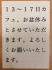 13〜17日カ
フェ、お盆休み
とさせていただ
きます。よろし
くお願いいたし
ます。